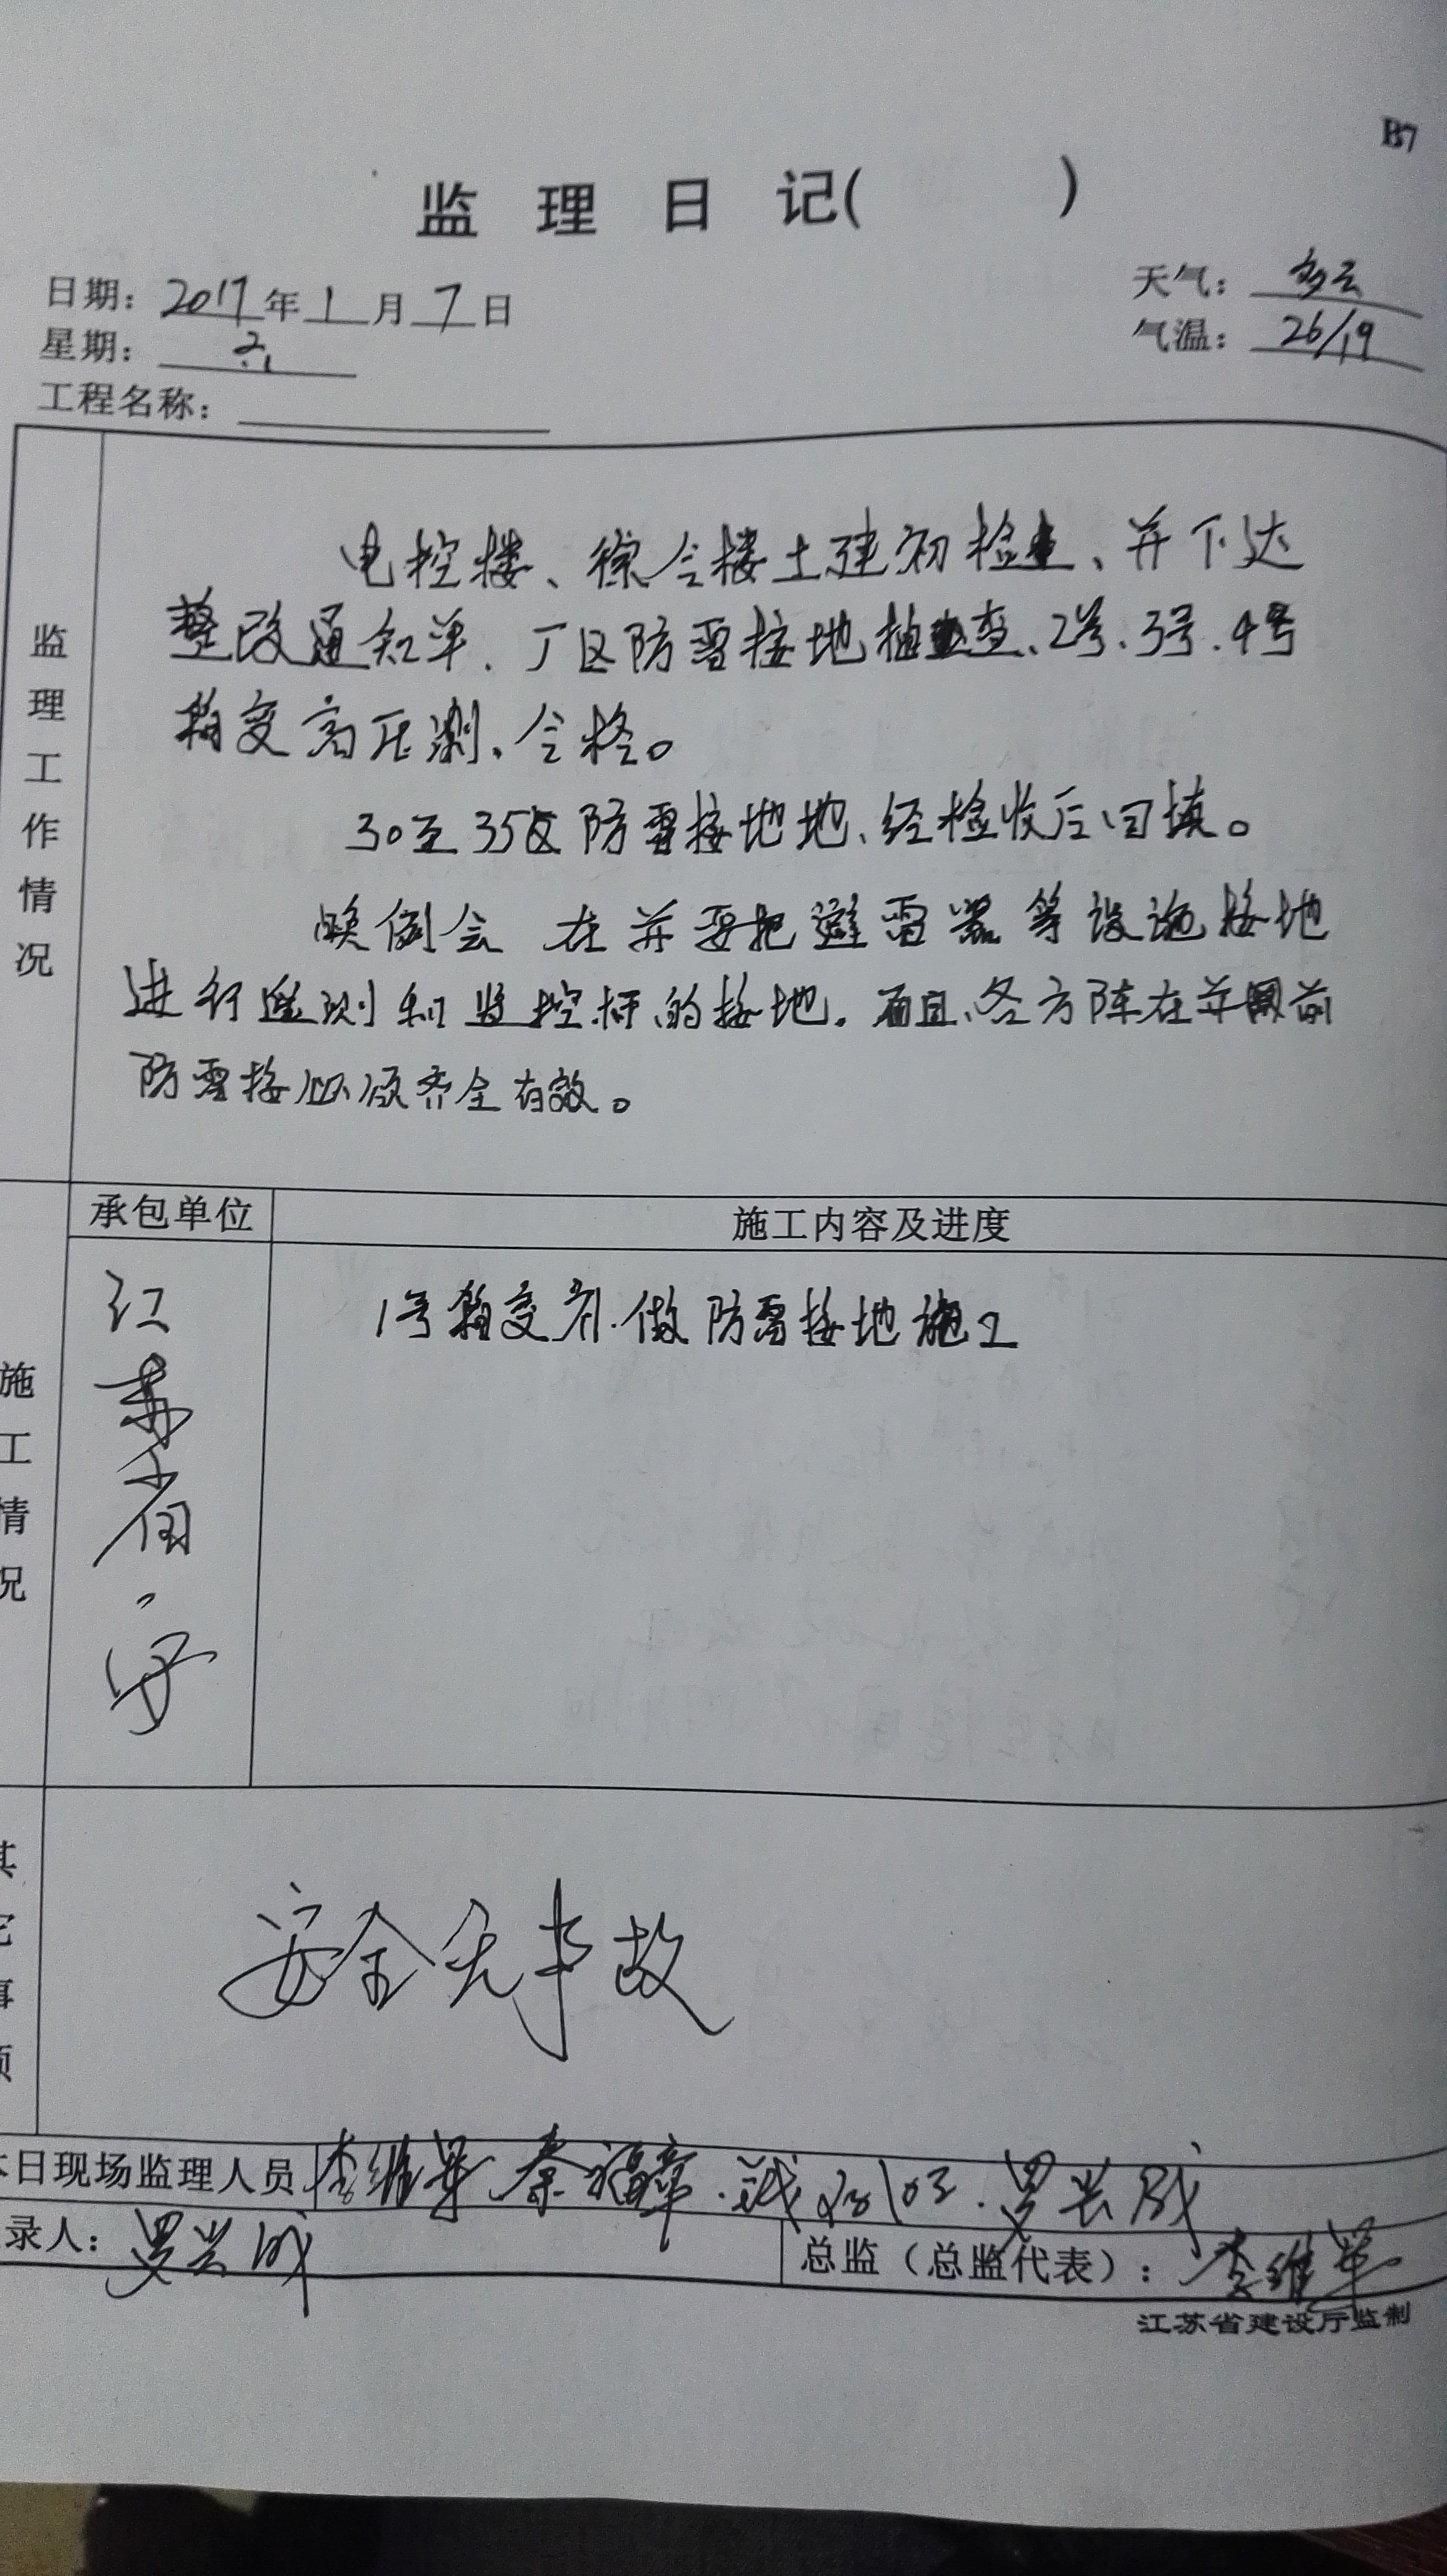 B7
监理日记( )
日期：2017年1月7日
天气：多云
星期：六
气温：26/19
工程名称：
监理工作情况
电控楼、综合楼土建初检查、并下达
整改通知单、厂区防雷接地抽查、2号、3号、4号
箱变高压测、合格。
30至35区防雷接地地、经检收后回填。
晚例会 在并要把避雷器等设施接地
进行遥测和监控柜的接地。而且、各方阵在并网前
防雷接必须齐全有效。
承包单位
施工内容及进度
施工情况
江苏省
1号箱变、做防雷接地施工
其它事项
安全无事故
本日现场监理人员 李维军 秦福章 罗兴成
录人：罗兴成
总监（总监代表）：李维军
江苏省建设厅监制